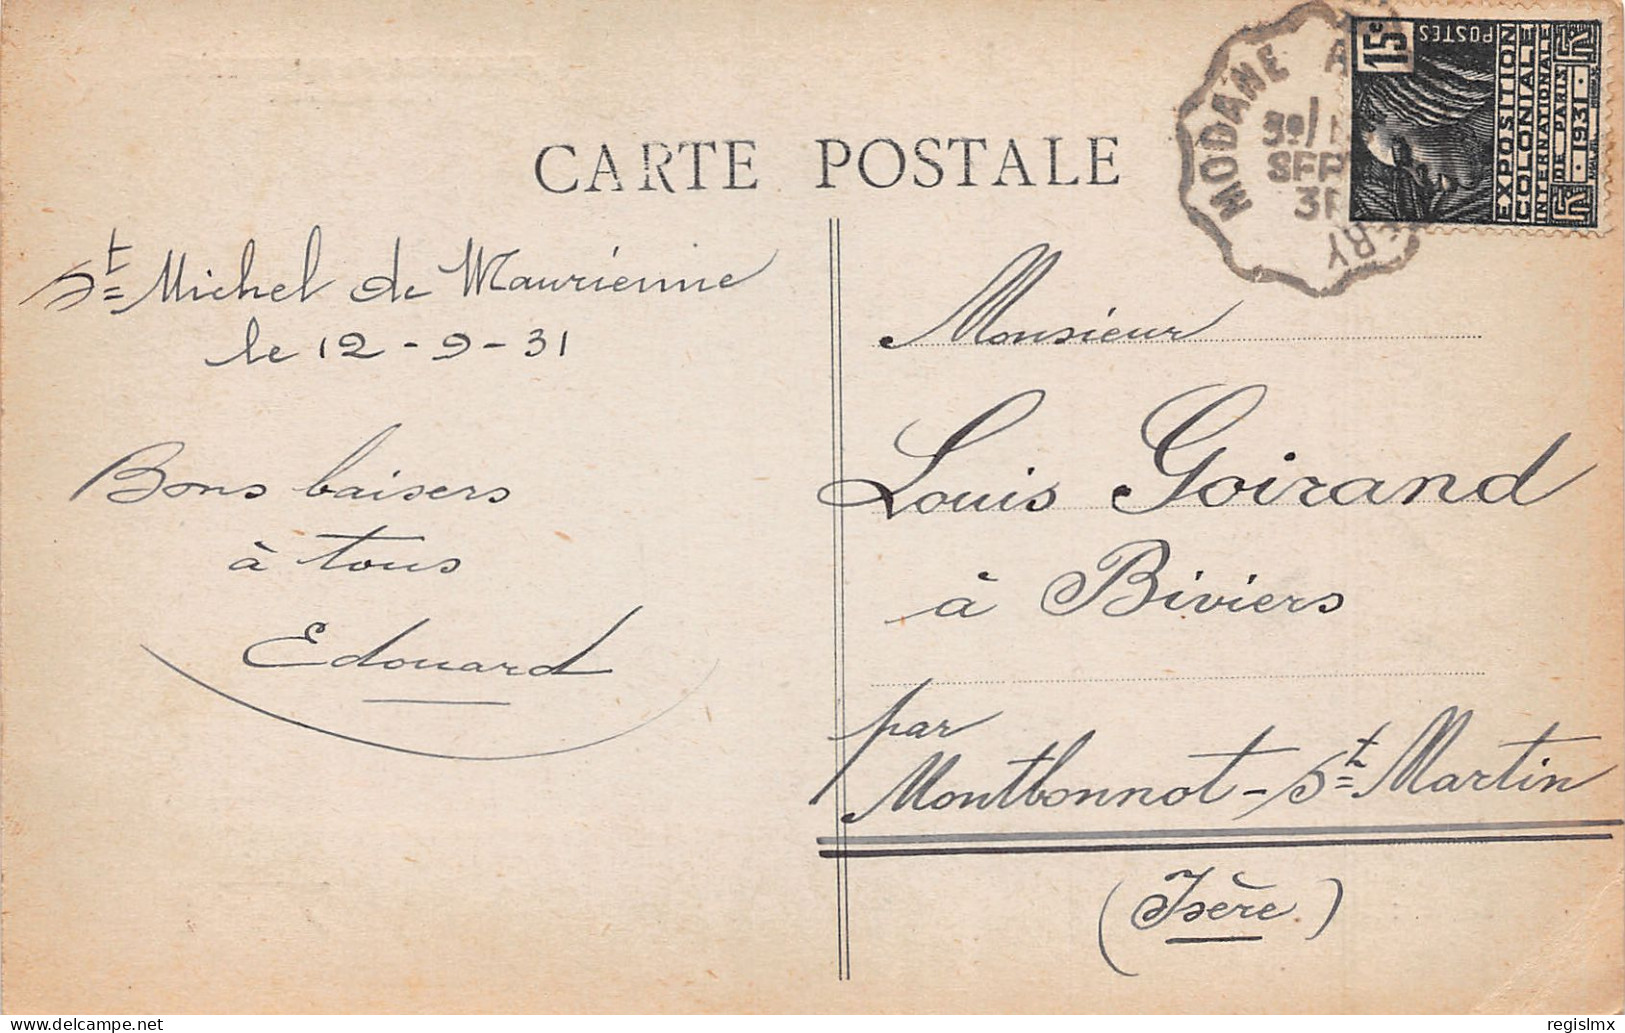 CARTE POSTALE
St Michel de Maurienne
le 12-9-31
Bons baisers
à tous
Edouard
MODANE A
3e/
SEPT
ERY
15c
POSTES
EXPOSITION
COLONIALE
INTERNATIONALE
DE PARIS
1931
Monsieur
Louis Goirand
à Biviers
par
Montbonnot-St Martin
(Isère)
delcampe.net
regislmx